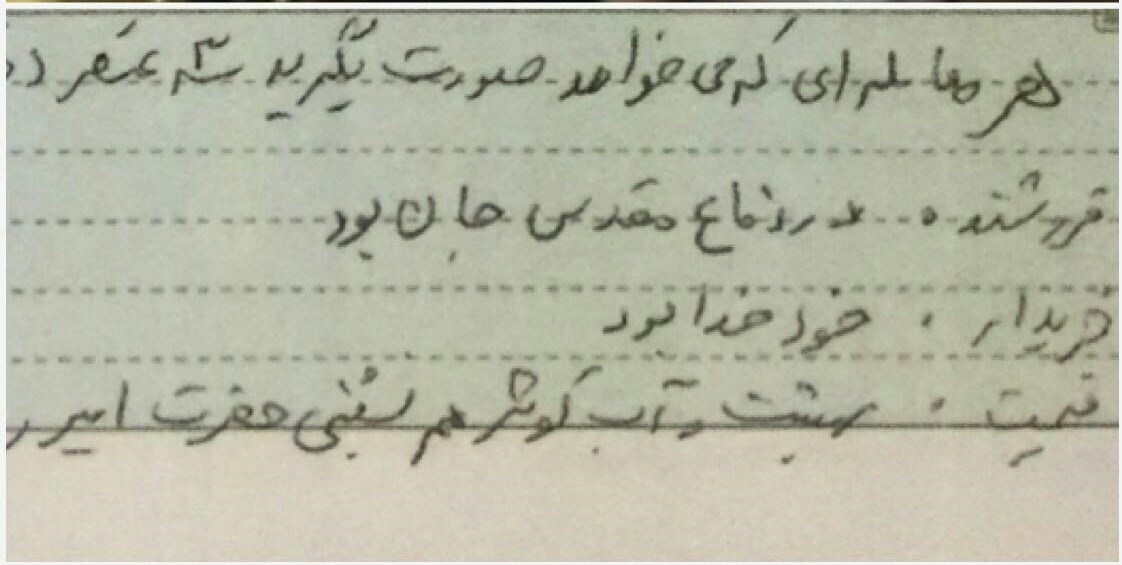 هر معامله ای که می خواهد صورت بگیرید سه عنصر دا
فروشنده . در دفاع مقدس جان بود
خریدار . خود خدا بود
قیمت . بهشت و آب کوثر هم نشینی حضرت امیر